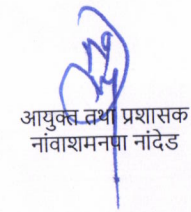 आयुक्त तथा प्रशासक
नांवाशमनपा नांदेड